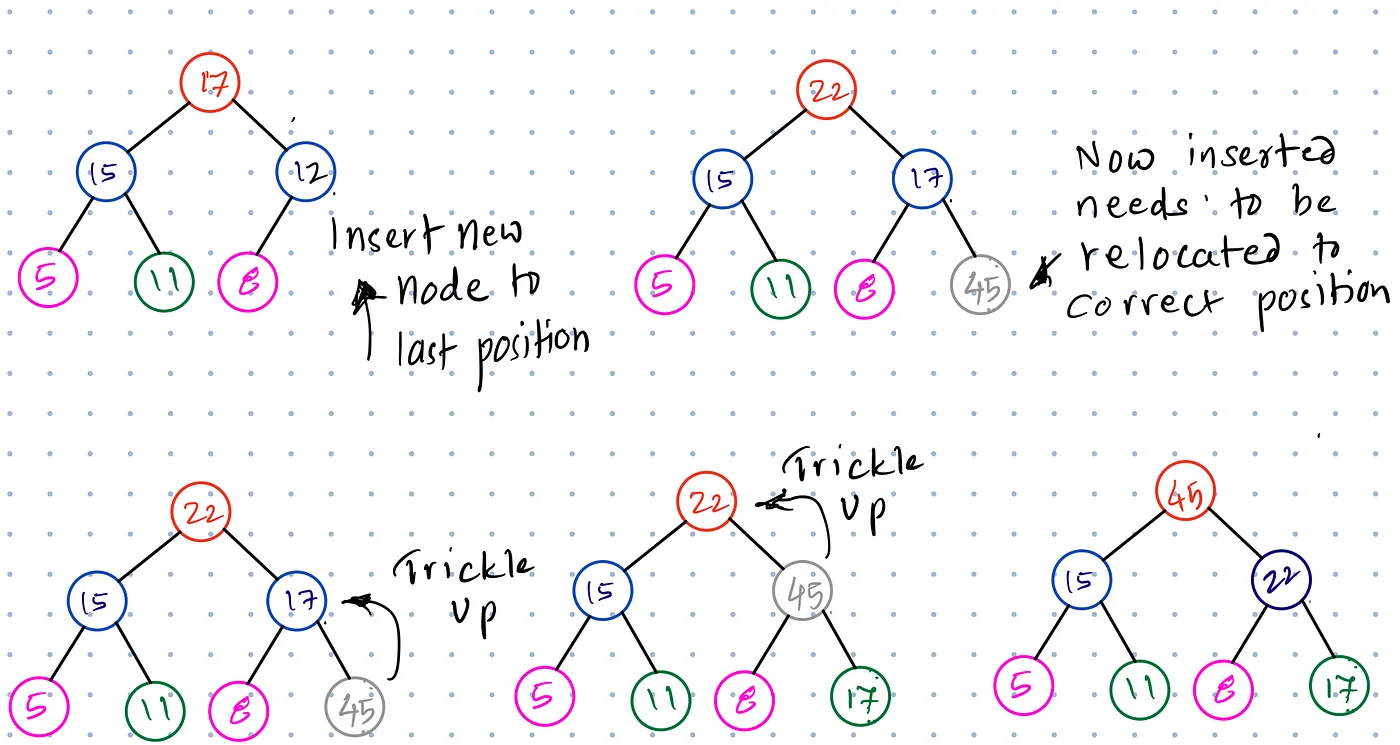 17
15 12
5 11 8
Insert new
node to
last position
22
15 17
5 11 8 45
Now inserted
needs to be
relocated to
correct position
22
15 17
5 11 8 45
Trickle
Up
22
15 45
5 11 8 17
Trickle
Up
45
15 22
5 11 8 17